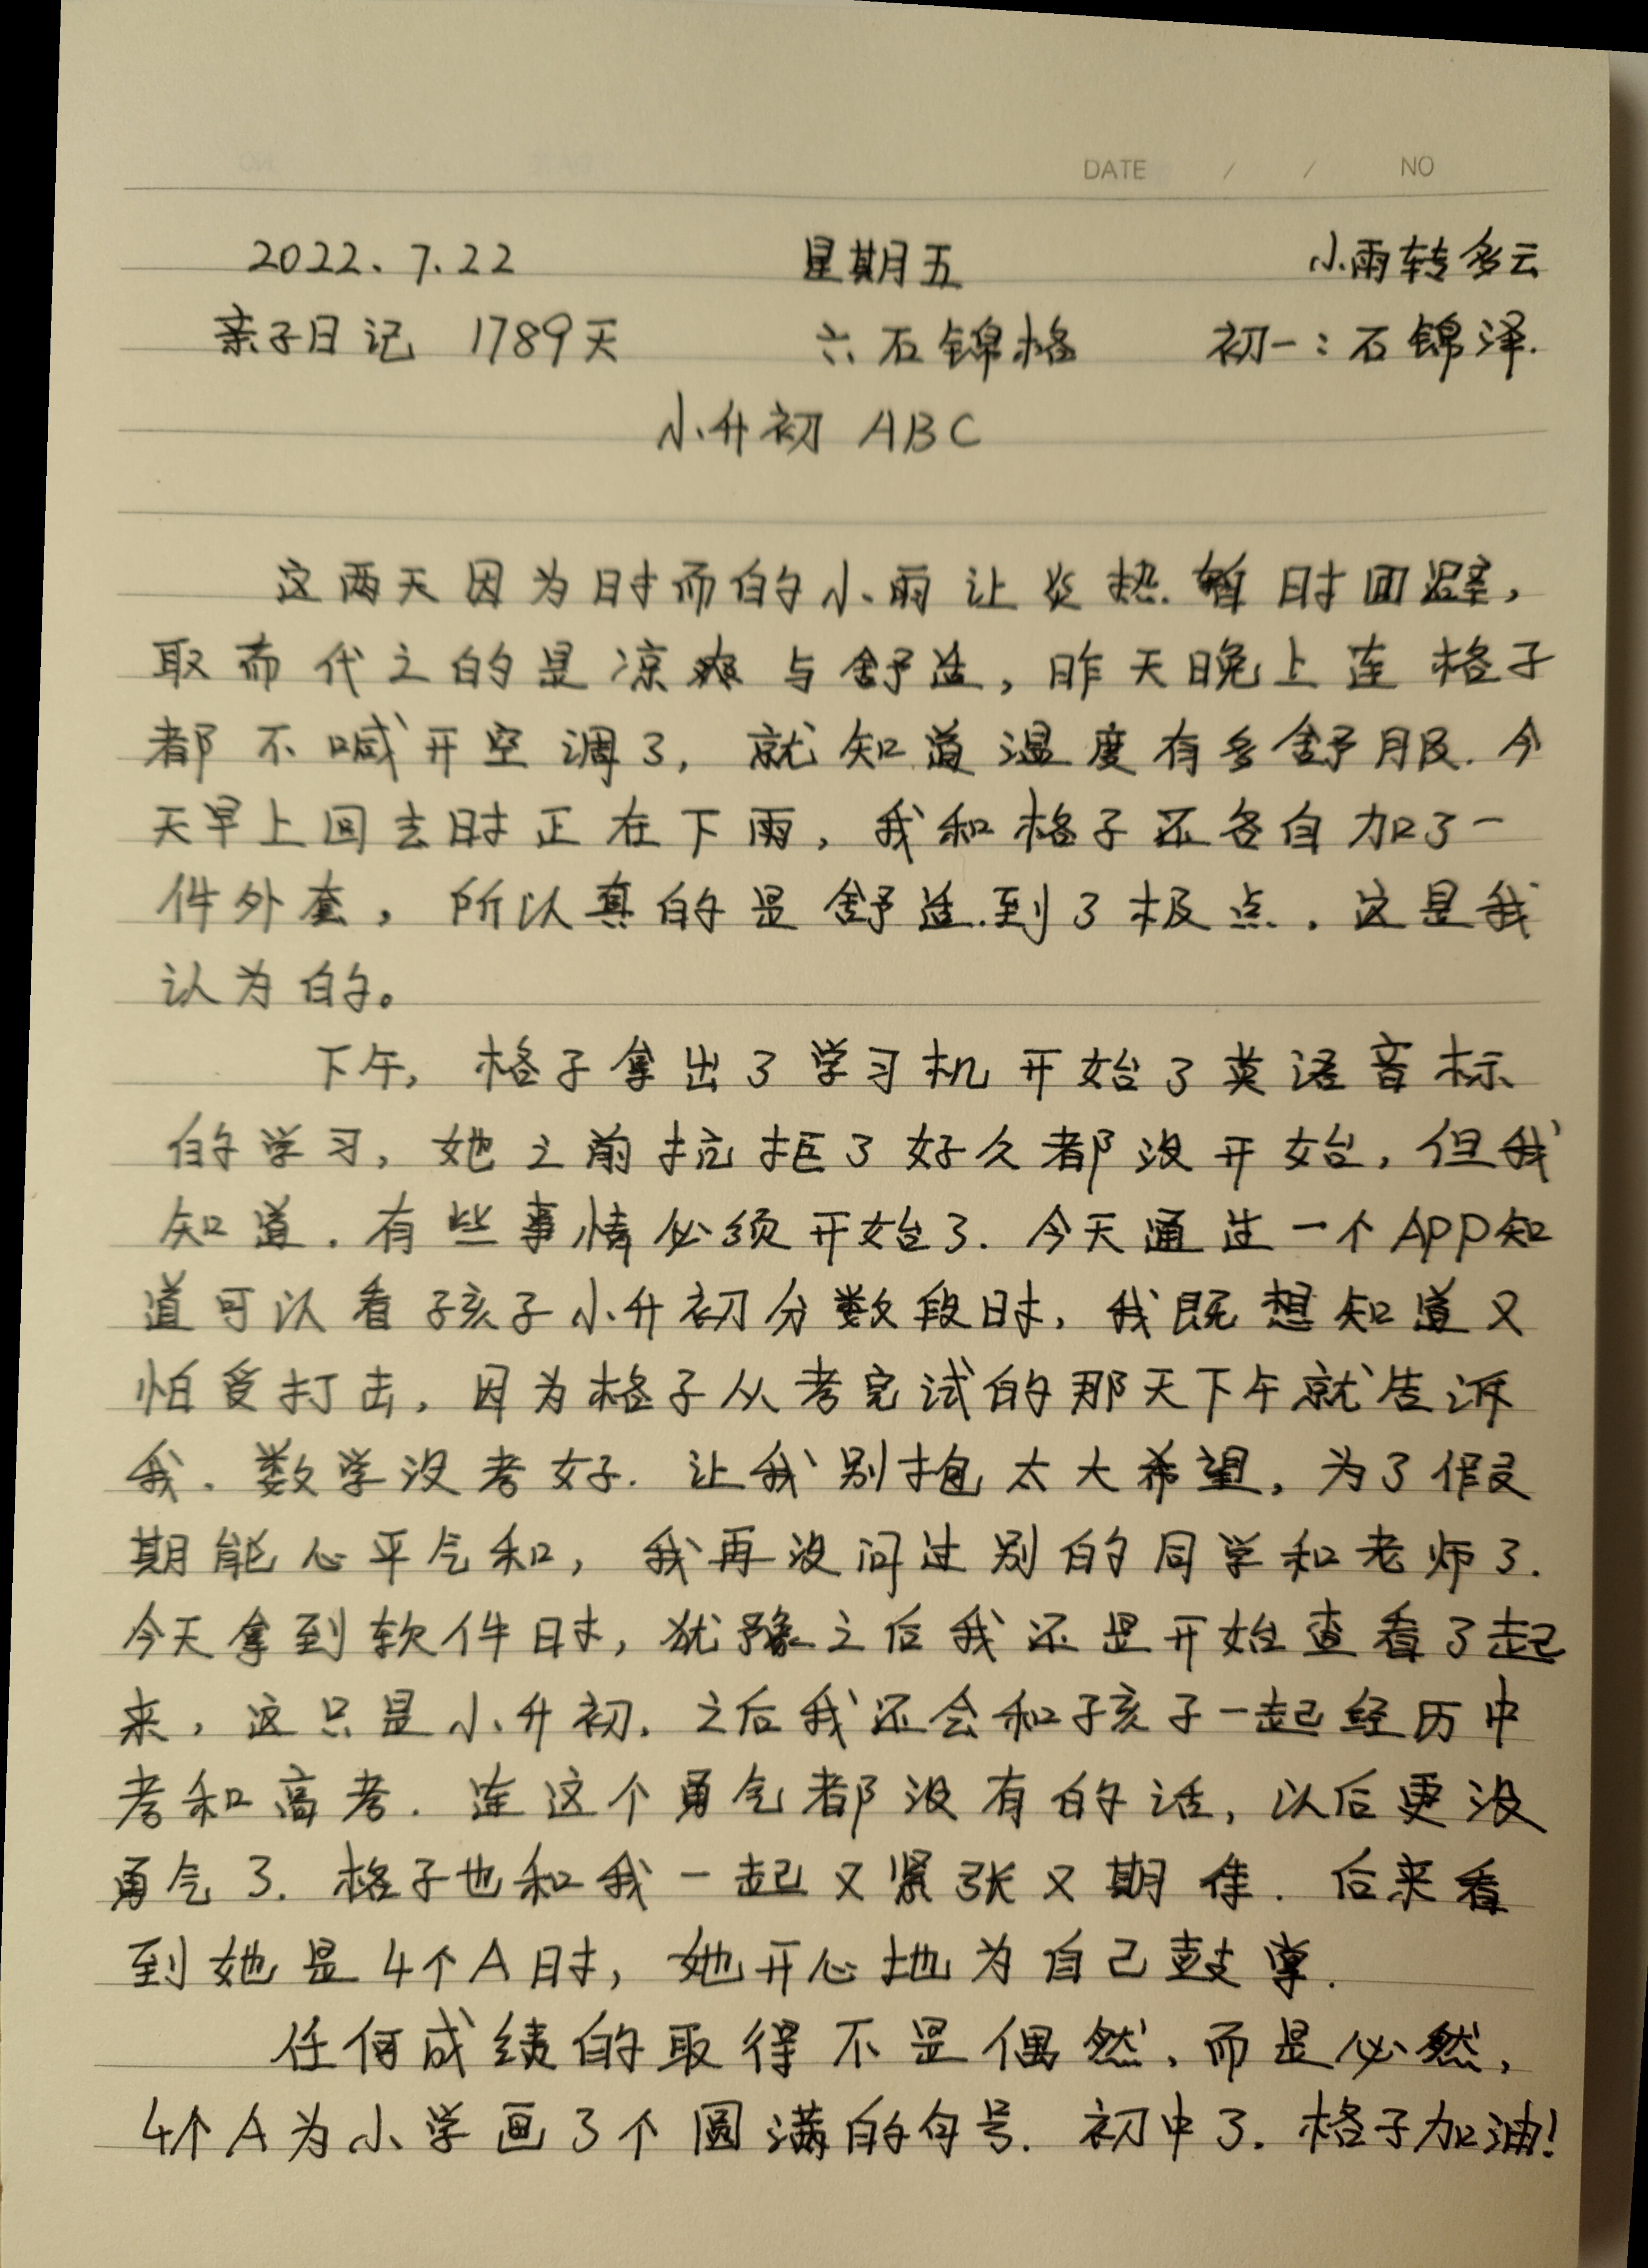 DATE / / NO
2022.7.22 星期五 小雨转多云
亲子日记 1789天 六:石锦格 初一:石锦泽.
小升初 ABC
这两天因为时而的小雨让炎热暂时回避,
取而代之的是凉爽与舒适,昨天晚上连格子
都不喊开空调了,就知道温度有多舒服.今
天早上回去时正在下雨,我和格子还各自加了一
件外套,所以真的是舒适到了极点.这是我
认为的。
下午,格子拿出了学习机开始了英语音标
的学习,她之前抗拒了好久都没开始,但我
知道.有些事情必须开始了.今天通过一个APP知
道可以看孩子小升初分数段时,我既想知道又
怕受打击,因为格子从考完试的那天下午就告诉
我.数学没考好.让我别抱太大希望,为了假
期能心平气和,我再没问过别的同学和老师了.
今天拿到软件时,犹豫之后我还是开始查看了起
来,这只是小升初.之后我还会和孩子一起经历中
考和高考.连这个勇气都没有的话,以后更没
勇气了.格子也和我一起又紧张又期待.后来看
到她是4个A时,她开心地为自己鼓掌.
任何成绩的取得不是偶然.而是必然,
4个A为小学画了个圆满的句号.初中了.格子加油!